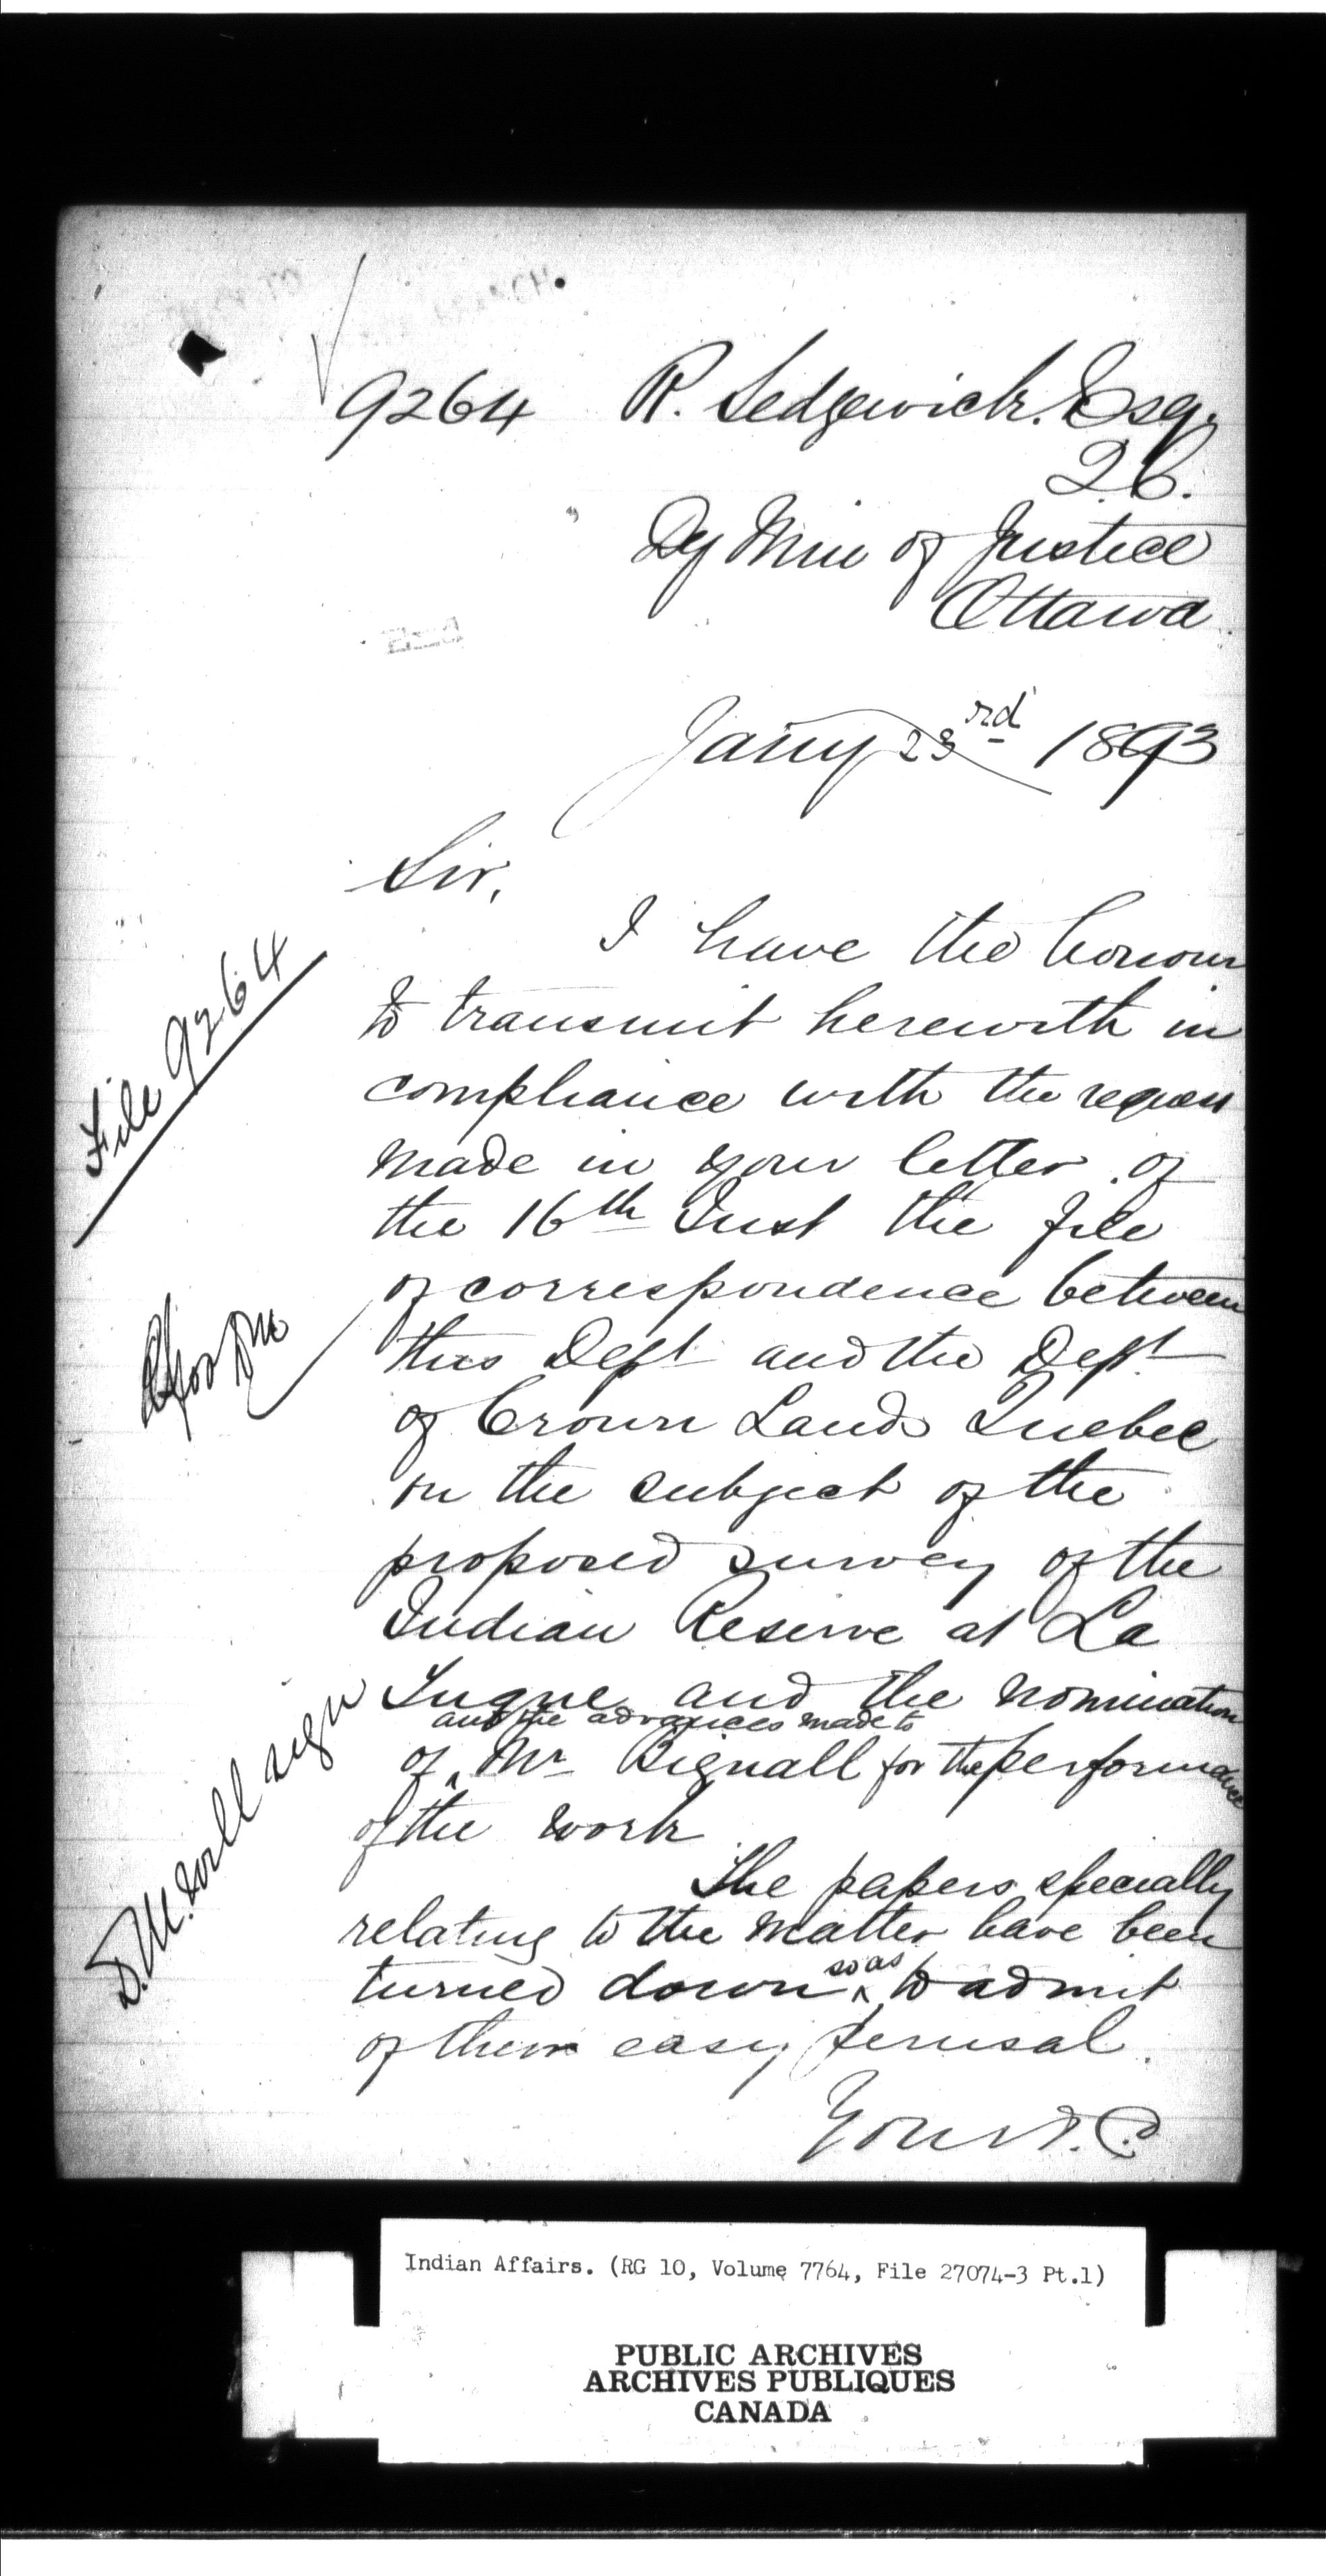 9264 R. Sedgewick. Esq.
Q.C.
Dy Min of Justice
Ottawa
Jany 23rd 1893
Sir,
I have the honour
to transmit herewith in
compliance with the request
made in your letter of
the 16th Inst the file
of correspondence between
this Dept and the Dept
of Crown Lands Quebec
on the subject of the
proposed survey of the
Indian Reserve at La
Tuque and the nomination
and the advances made to
of Mr Bignall for the performance
of the work
The papers specially
relating to the matter have been
turned down so as to admit
of their easy perusal.
Yours.
File 9264
D.M. will sign
Indian Affairs. (RG 10, Volume 7764, File 27074-3 Pt.1)
PUBLIC ARCHIVES
ARCHIVES PUBLIQUES
CANADA